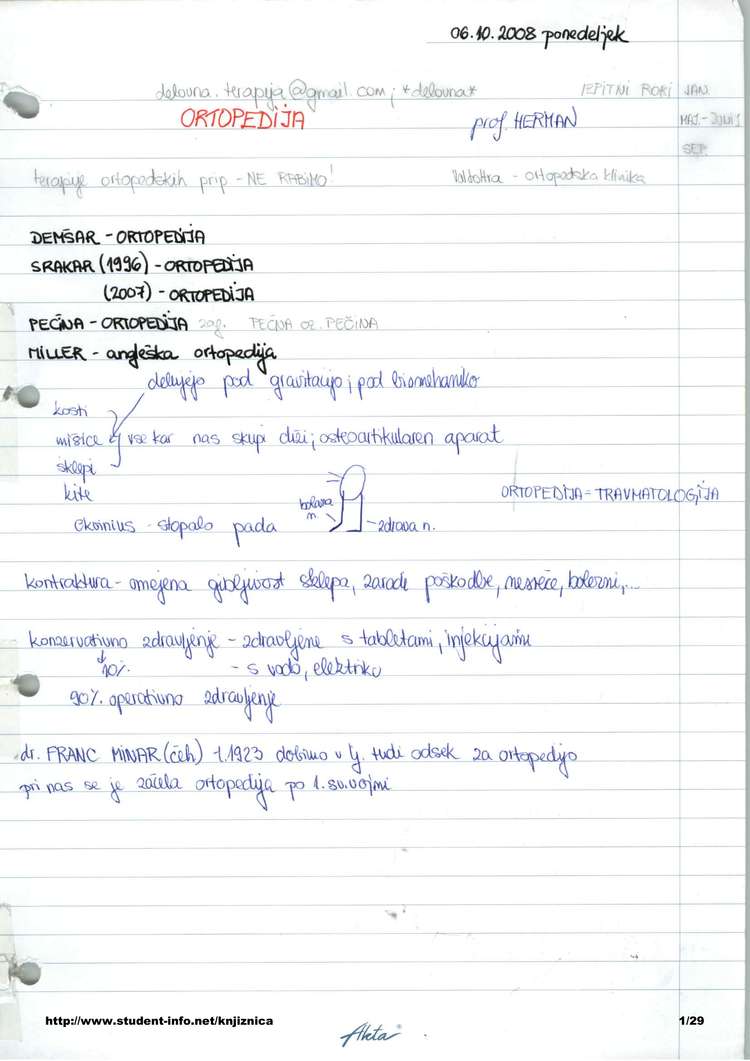 06.10.2008 ponedeljek
delovna.terapija@gmail.com ; *delovna*
IZPITNI ROKI JAN
ORTOPEDIJA
prof. HERMAN
MAJ - JUNIJ
SEP.
terapije ortopedskih prip - NE RABIMO!
Valdoltra - ortopedska klinika
DEMŠAR - ORTOPEDIJA
SRAKAR (1996) - ORTOPEDIJA
(2007) - ORTOPEDIJA
PEĆINA - ORTOPEDIJA zag. PEĆINA oz. PEČINA
MILLER - angleška ortopedija
delujejo pod gravitacijo ; pod biomehaniko
kosti
mišice
vse kar nas skupi drži ; osteoartikularen aparat
sklepi
kite
ORTOPEDIJA = TRAVMATOLOGIJA
bolana n.
Ekvinius - stopalo pada
- zdrava n.
kontraktura - omejena gibljivost sklepa, zaradi poškodbe, nesreče, bolezni,...
konzervativno zdravljenje - zdravljenje s tabletami, injekcijami
10%
- s vodo, elektriko
90% operativno zdravljenje
dr. FRANC MINAR (čeh) - l.1923 dobimo v Lj. tudi odsek za ortopedijo
pri nas se je začela ortopedija po 1.sv.vojni
http://www.student-info.net/knjiznica
1/29
Akta